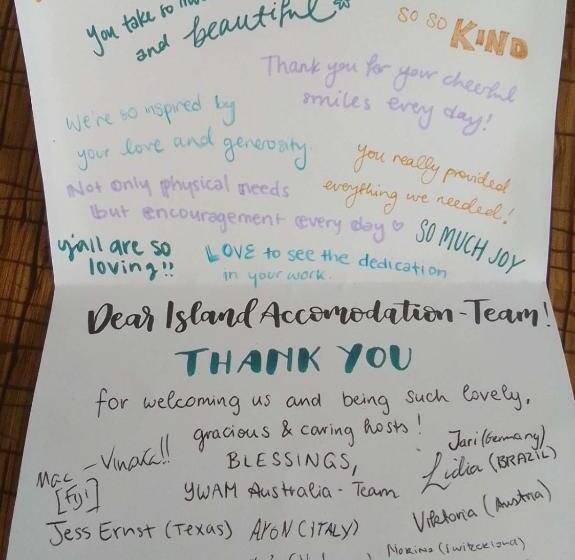 You take so
and beautiful
SO SO KIND
Thank you for your cheerful
smiles every day!
We're so inspired by
your love and generosity.
you really provided
everything we needed!
Not only physical needs
but encouragement every day ♡
SO MUCH JOY
y'all are so
loving!!
LOVE to see the dedication
in your work.
Dear Island Accomodation-Team!
THANK YOU
for welcoming us and being such lovely,
gracious & caring hosts!
BLESSINGS,
YWAM Australia - Team
Mac - Vinaka!!
[Fiji]
Jari (Germany)
Lidia (BRAZIL)
Viktoria (Austria)
Jess Ernst (Texas)
AYON (ITALY)
(Switzerland)